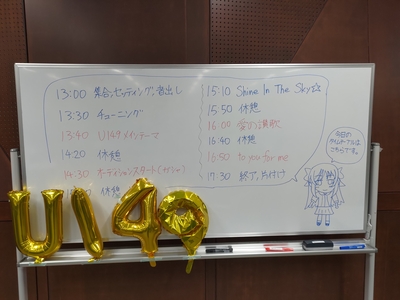 13:00 集合、セッティング、音出し
13:30 チューニング
13:40 U149メインテーマ
14:20 休憩
14:30 オーディションスタート
休憩
15:10 Shine In The Sky☆
15:50 休憩
16:00 愛の讃歌
16:40 休憩
16:50 to you for me
17:30 終了、片付け
今日の
タイムテーブルは
こちらです。
U149